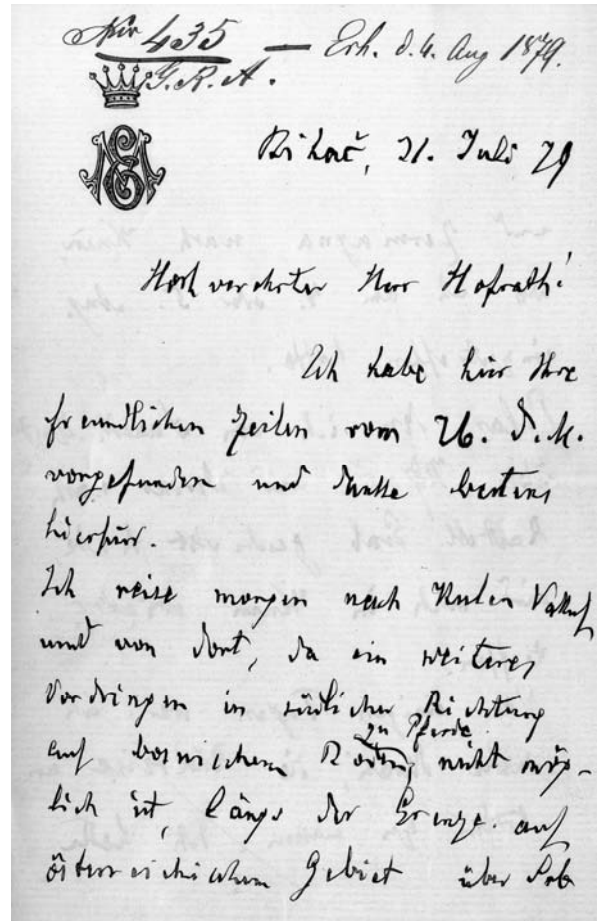 Nro 435 — Erh. d. 4. Aug 1879.
G.R.A.
Bihač, 31. Juli 79
Hochverehrter Herr Hofrath!
Ich habe hier Ihre
freundlichen Zeilen vom 26. d. M.
vorgefunden und danke bestens
hierfür.
Ich reise morgen nach Kulen Vakuf
und von dort, da ein weiteres
Vordringen in südlicher Richtung
zu Pferde
auf bosnischem Boden nicht mög-
lich ist, längs der Grenze auf
österreichischem Gebiet über Srb